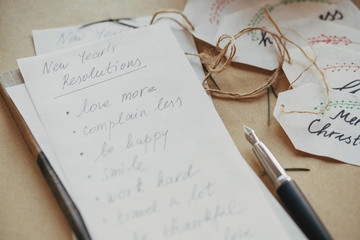 New Year's
New Year's
Resolutions
• love more
• complain less
• be happy
• smile
• work hard
• travel a lot
be thankful
love
ss
Me
Christm